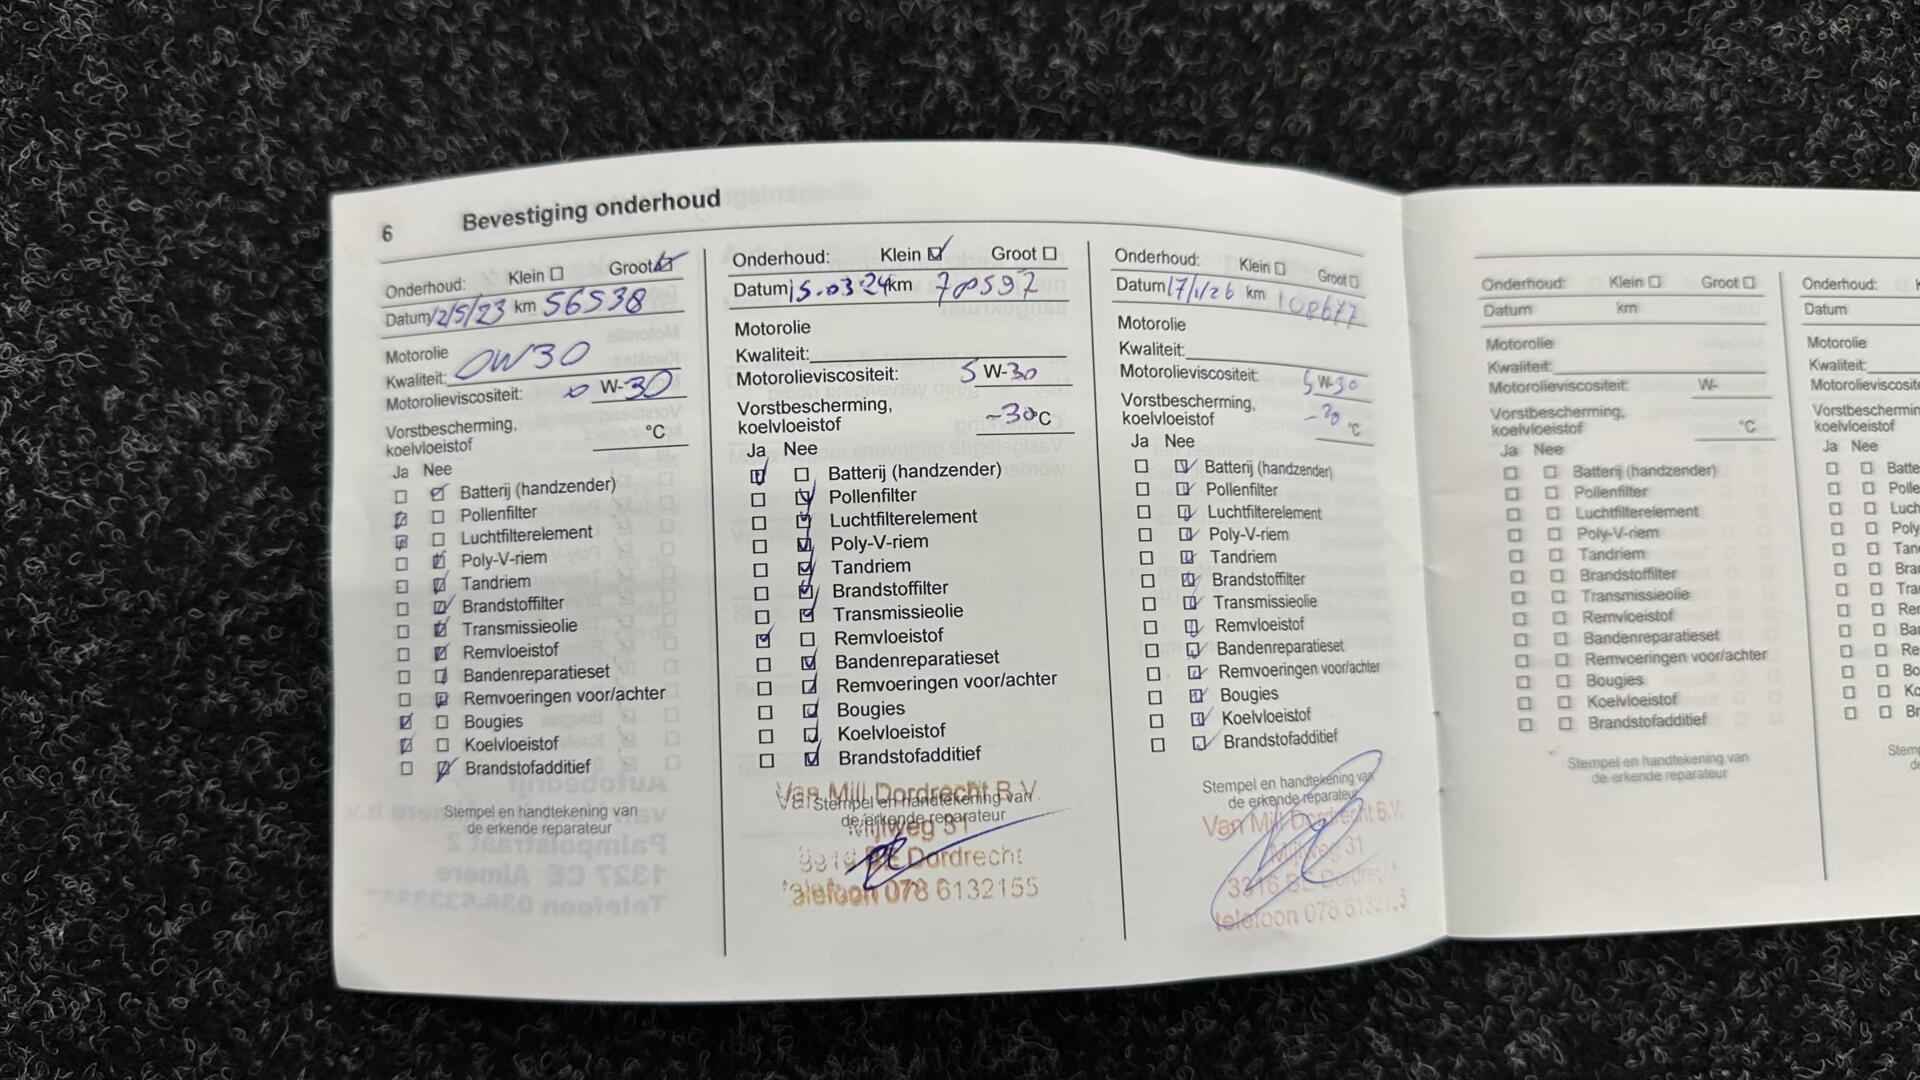 6 Bevestiging onderhoud
Onderhoud: Klein Groot
Datum 12/5/23 km 56538
Motorolie
Kwaliteit: 0W30
Motorolieviscositeit: 0 W-30
Vorstbescherming,
koelvloeistof °C
Ja Nee
Batterij (handzender)
Pollenfilter
Luchtfilterelement
Poly-V-riem
Tandriem
Brandstoffilter
Transmissieolie
Remvloeistof
Bandenreparatieset
Remvoeringen voor/achter
Bougies
Koelvloeistof
Brandstofadditief
Stempel en handtekening van
de erkende reparateur
Onderhoud: Klein Groot
Datum 15.03.24 km 70597
Motorolie
Kwaliteit:
Motorolieviscositeit: 5 W-30
Vorstbescherming,
koelvloeistof -30 °C
Ja Nee
Batterij (handzender)
Pollenfilter
Luchtfilterelement
Poly-V-riem
Tandriem
Brandstoffilter
Transmissieolie
Remvloeistof
Bandenreparatieset
Remvoeringen voor/achter
Bougies
Koelvloeistof
Brandstofadditief
Van Mill Dordrecht B.V.
Stempel en handtekening van
de erkende reparateur
Mijlweg 31
3316 BE Dordrecht
telefoon 078 6132155
Onderhoud: Klein Groot
Datum 17/1/26 km
Motorolie
Kwaliteit:
Motorolieviscositeit: 5 W-30
Vorstbescherming,
koelvloeistof °C
Ja Nee
Batterij (handzender)
Pollenfilter
Luchtfilterelement
Poly-V-riem
Tandriem
Brandstoffilter
Transmissieolie
Remvloeistof
Bandenreparatieset
Remvoeringen voor/achter
Bougies
Koelvloeistof
Brandstofadditief
Stempel en handtekening van
de erkende reparateur
Van Mill Dordrecht B.V.
Mijlweg 31
3316 BE Dordrecht
telefoon 078
Onderhoud: Klein Groot
Datum km
Motorolie
Kwaliteit:
Motorolieviscositeit: W-
Vorstbescherming,
koelvloeistof °C
Ja Nee
Batterij (handzender)
Pollenfilter
Luchtfilterelement
Poly-V-riem
Tandriem
Brandstoffilter
Transmissieolie
Remvloeistof
Bandenreparatieset
Remvoeringen voor/achter
Bougies
Koelvloeistof
Brandstofadditief
Stempel en handtekening van
de erkende reparateur
Onderhoud: K
Datum
Motorolie
Kwaliteit:
Motorolieviscosite
Vorstbeschermin
koelvloeistof
Ja Nee
Batte
Polle
Lucht
Poly
Tan
Bra
Tra
Re
Ba
Re
Bo
Ko
Br
Stem
de